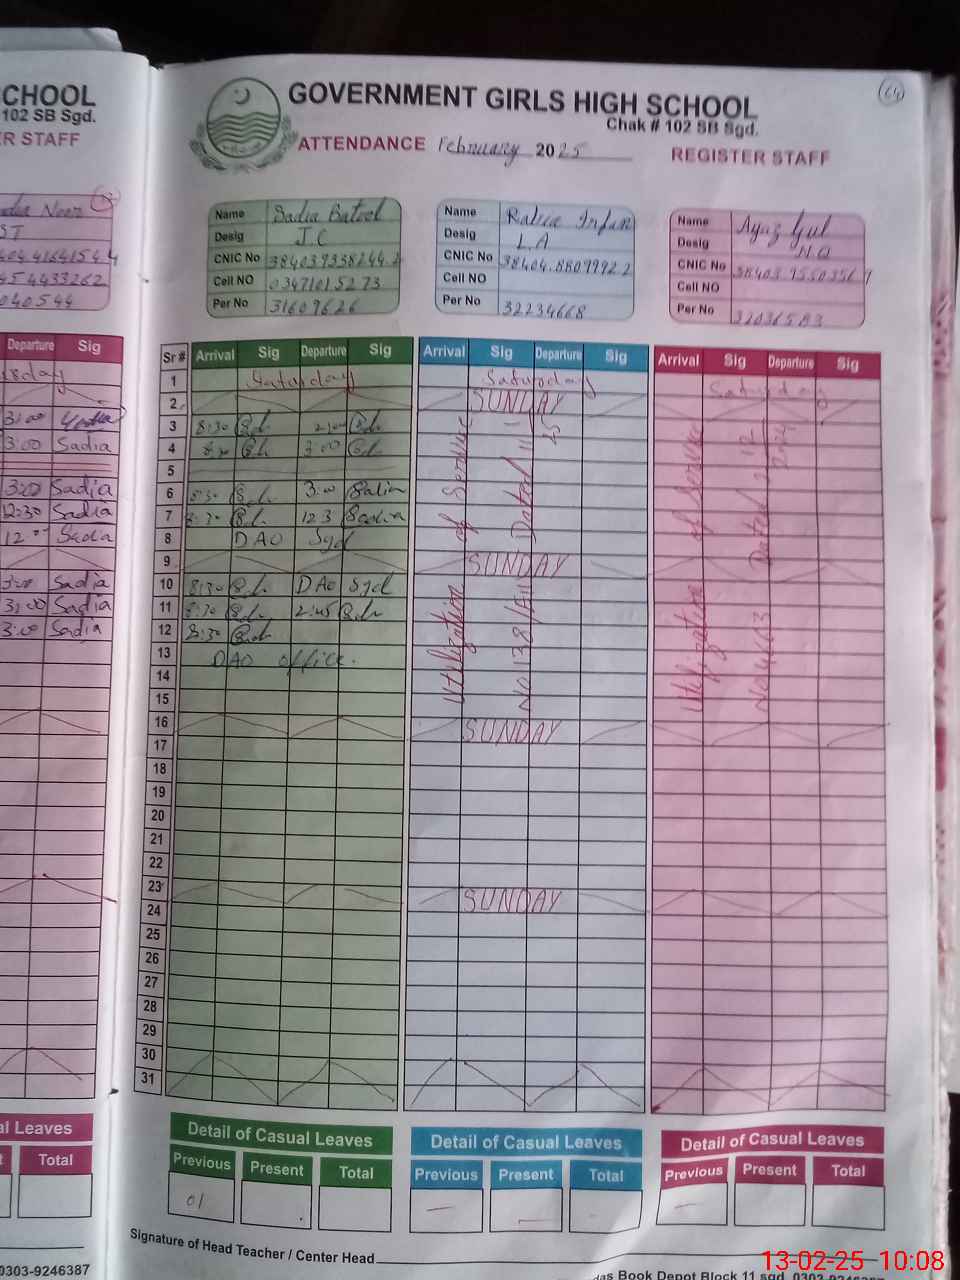 CHOOL
102 SB Sgd.
ER STAFF
GOVERNMENT GIRLS HIGH SCHOOL
Chak # 102 SB Sgd.
ATTENDANCE February 2025
REGISTER STAFF
64
Name Sadia Batool
Desig J.C
CNIC No
Cell NO 03471015273
Per No 31609626
Name Rabia Irfan
Desig L.A
CNIC No 38404.8809992 2
Cell NO
Per No 32234668
Name Ayaz Gul
Desig N.Q
CNIC No 38403.9550356 9
Cell NO
Per No
Departure Sig
3:00
3:00 Sadia
3:00 Sadia
12:30 Sadia
12 Sadia
Sadia
3:00 Sadia
3:00 Sadia
Sr # Arrival Sig Departure Sig Arrival Sig Departure Sig Arrival Sig Departure Sig
1 Saturday Saturday Saturday
2 SUNDAY
3 8:30
4 3:00
5
6 8:30 3:00 Sadia
7 8:30 12:3 Sadia
8 DAO Sgd
9 SUNDAY
10 8:30 DAO Sgd
11 8:30 2:45
12 8:30
13 DAO office.
14
15
16 SUNDAY
17
18
19
20
21
22
23 SUNDAY
24
25
26
27
28
29
30
31
Utilization of Service
Utilization of Service
al Leaves
Total
Detail of Casual Leaves
Previous Present Total
01
Detail of Casual Leaves
Previous Present Total
Detail of Casual Leaves
Previous Present Total
Signature of Head Teacher / Center Head
0303-9246387
Book Depot Block 11 sgd
13-02-25 10:08